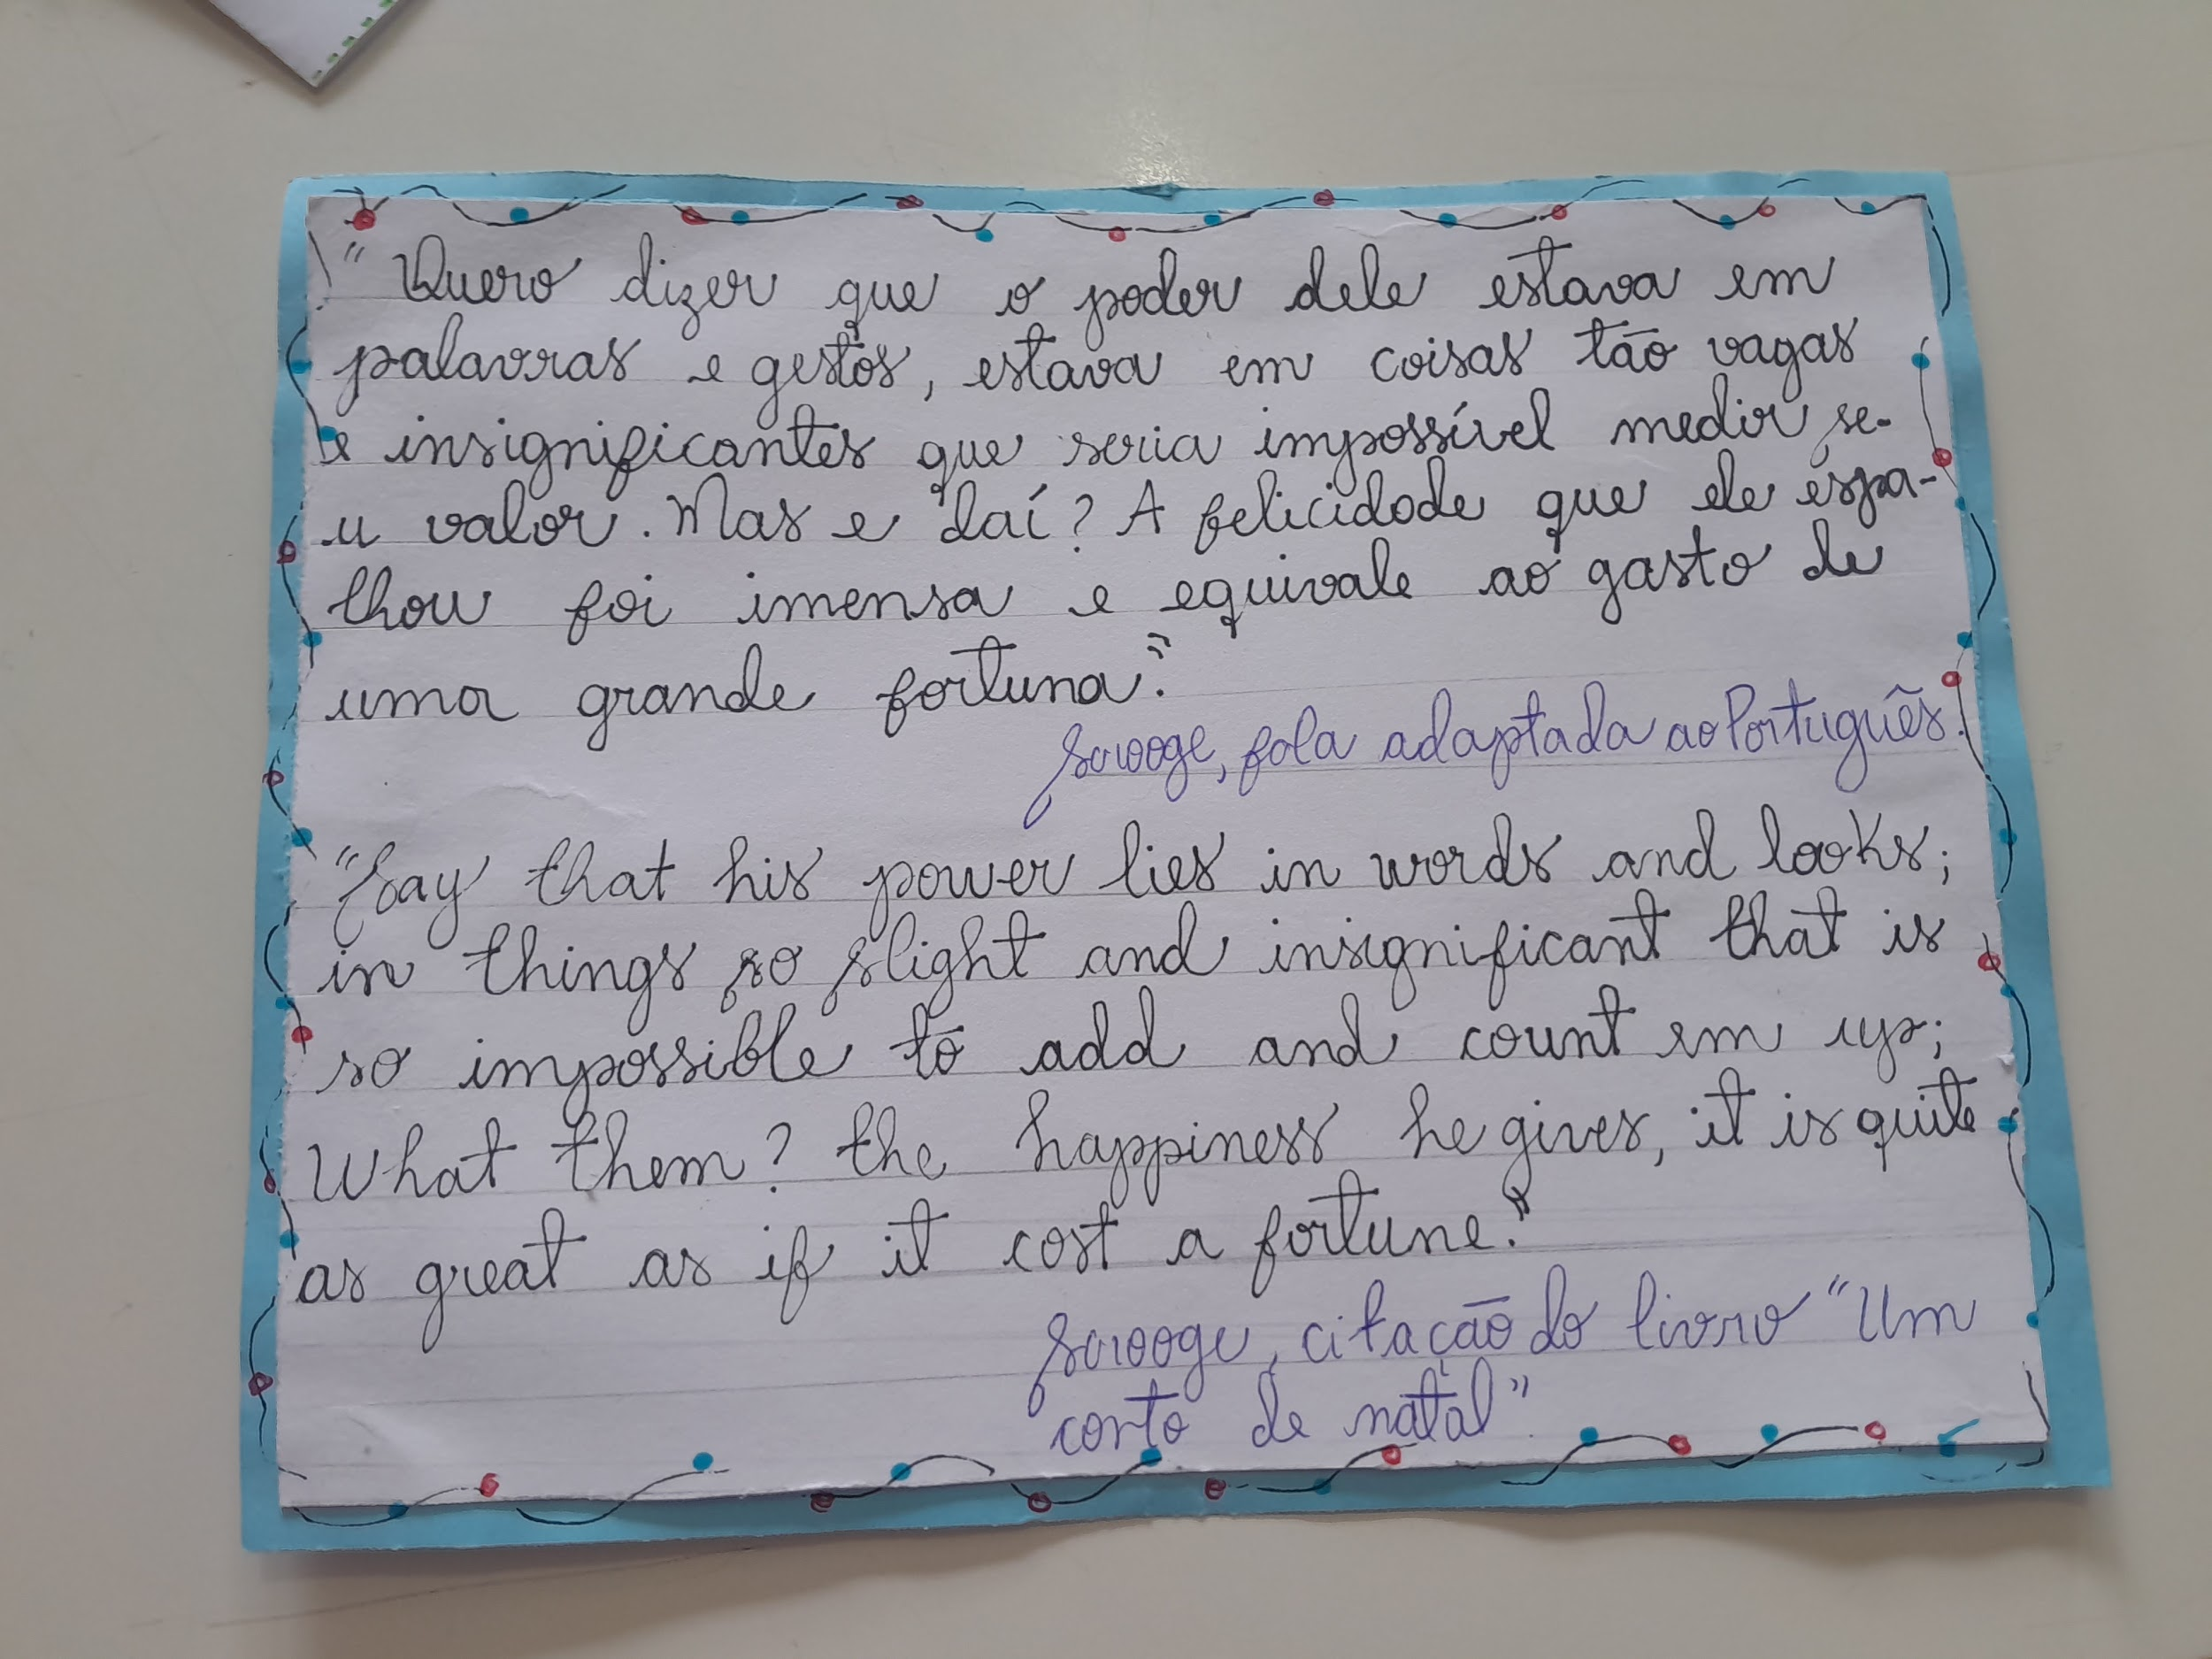 "Quero dizer que o poder dele estava em
palavras e gestos, estava em coisas tão vagas
e insignificantes que seria impossível medir se-
u valor. Mas e daí? A felicidade que ele espa-
lhou foi imensa e equivale ao gasto de
uma grande fortuna."
Scrooge, fala adaptada ao Português.
"Say that his power lies in words and looks;
in things so slight and insignificant that is
so impossible to add and count em up;
What them? the happiness he gives, it is quite
as great as if it cost a fortune."
Scrooge, citação do livro "Um
conto de natal"